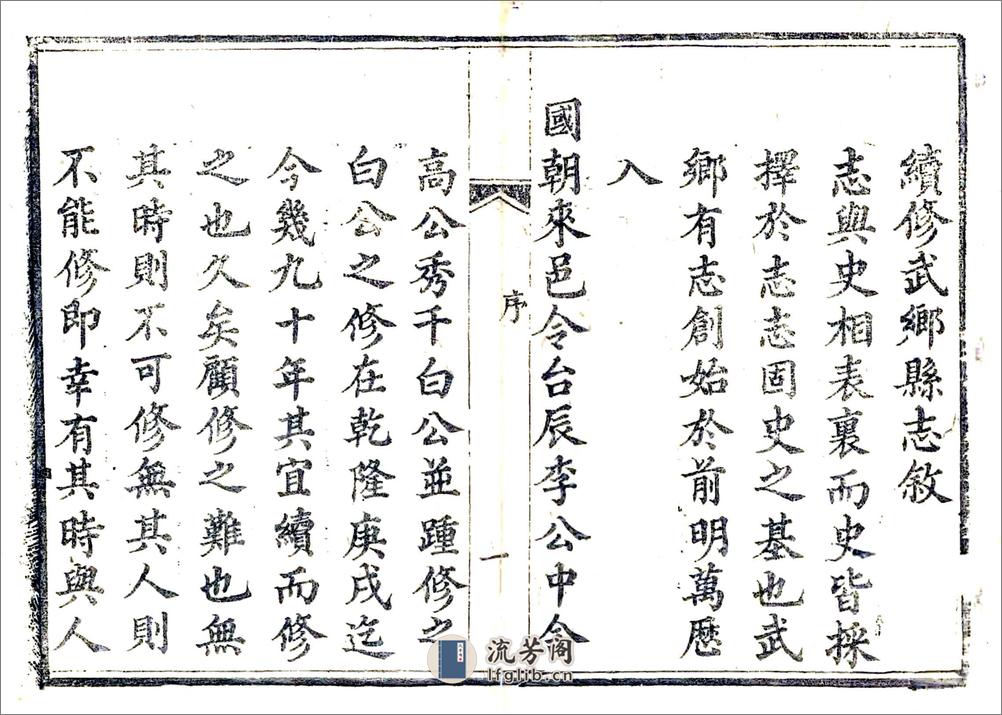 續修武鄉縣志敘
志與史相表裏而史皆採
擇於志志固史之基也武
鄉有志創始於前明萬歷
入
國朝來邑令台辰李公中今
高公秀千白公並踵修之
白公之修在乾隆庚戌迄
今幾九十年其宜續而修
之也久矣顧修之難也無
其時則不可修無其人則
不能修即幸有其時與人
序
一
流芳阁
lfglib.cn